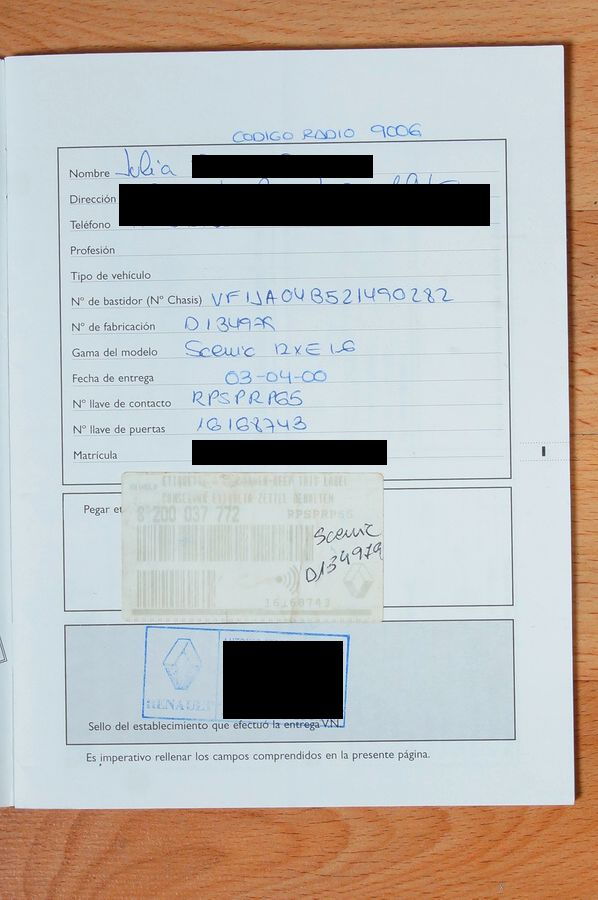 CODIGO RADIO 9006
Nombre Julia
Dirección
Teléfono
Profesión
Tipo de vehículo
Nº de bastidor (Nº Chasis) VF1JA04B521490282
Nº de fabricación D134979
Gama del modelo Scenic RXE 1.6
Fecha de entrega 03-04-00
Nº llave de contacto RPSPRP65
Nº llave de puertas 16168743
Matrícula
Pegar et
CONSERVE ETIQUETA-ZETTEL BEHALTEN
8 200 037 772 RPSPRP65
Scenic
D134979
16168743
RENAULT
Sello del establecimiento que efectuó la entrega V.N.
Es imperativo rellenar los campos comprendidos en la presente página.